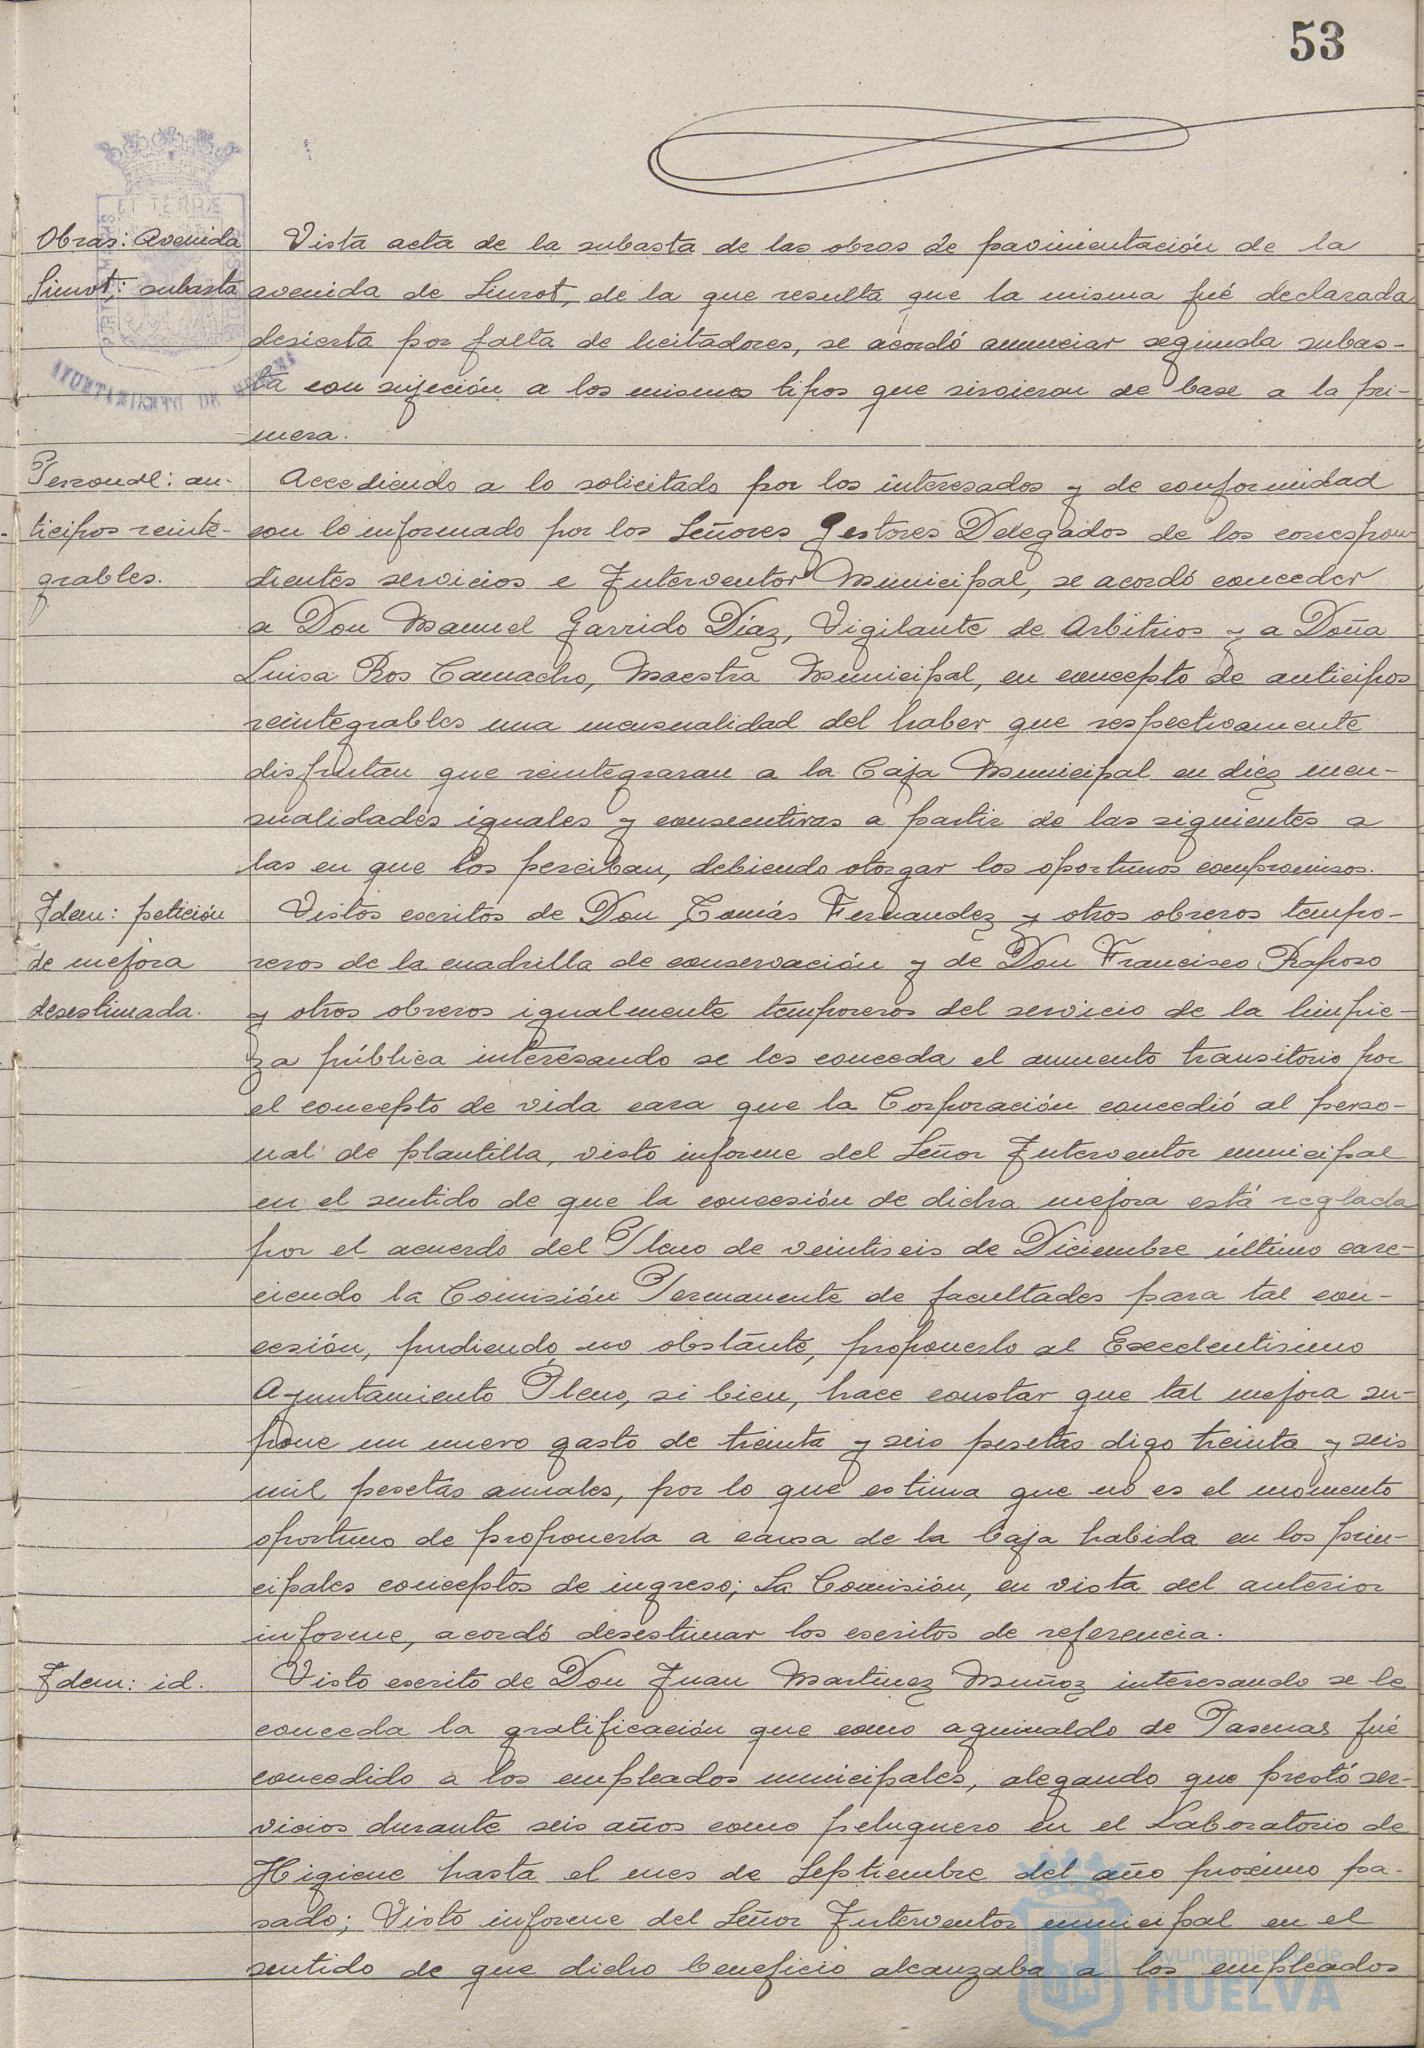 53
Obras: Avenida
Siurot: subasta
Vista acta de la subasta de las obras de pavimentación de la
avenida de Siurot, de la que resulta que la misma fué declarada
desierta por falta de licitadores, se acordó anunciar segunda subas-
ta con sujeción a los mismos tipos que sirvieron de base a la pri-
mera.
Personal: an-
ticipos reinte-
grables.
Accediendo a lo solicitado por los interesados y de conformidad
con lo informado por los Señores Gestores Delegados de los correspon-
dientes servicios e Interventor Municipal, se acordó conceder
a Don Manuel Garrido Díaz, Vigilante de Arbitrios y a Doña
Luisa Ros Camacho, Maestra Municipal, en concepto de anticipos
reintegrables una mensualidad del haber que respectivamente
disfrutan que reintegraran a la Caja Municipal en diez men-
sualidades iguales y consecutivas a partir de las siguientes a
las en que los perciban, debiendo otorgar los oportunos compromisos.
Idem: petición
de mejora
desestimada.
Vistos escritos de Don Tomás Fernandez y otros obreros tempo-
reros de la cuadrilla de conservación y de Don Francisco Raposo
y otros obreros igualmente temporeros del servicio de la limpie-
za pública interesando se les conceda el aumento transitorio por
el concepto de vida cara que la Corporación concedió al perso-
nal de plantilla, visto informe del Señor Interventor municipal
en el sentido de que la concesión de dicha mejora está reglada
por el acuerdo del Pleno de veintiseis de Diciembre último care-
ciendo la Comisión Permanente de facultades para tal con-
cesión, pudiendo, no obstante, proponerlo al Excelentisimo
Ayuntamiento Pleno, si bien, hace constar que tal mejora su-
pone un nuevo gasto de treinta y seis pesetas digo treinta y seis
mil pesetas anuales, por lo que estima que no es el momento
oportuno de proponerla a causa de la baja habida en los prin-
cipales conceptos de ingreso; La Comisión, en vista del anterior
informe, acordó desestimar los escritos de referencia.
Idem: id.
Visto escrito de Don Juan Martinez Muñoz interesando se le
conceda la gratificación que como aguinaldo de Pascuas fué
concedido a los empleados municipales, alegando que prestó ser-
vicios durante seis años como peluquero en el Laboratorio de
Higiene hasta el mes de Septiembre del año proximo pa-
sado; Visto informe del Señor Interventor municipal en el
sentido de que dicho beneficio alcanzaba a los empleados
Ayuntamiento de
HUELVA